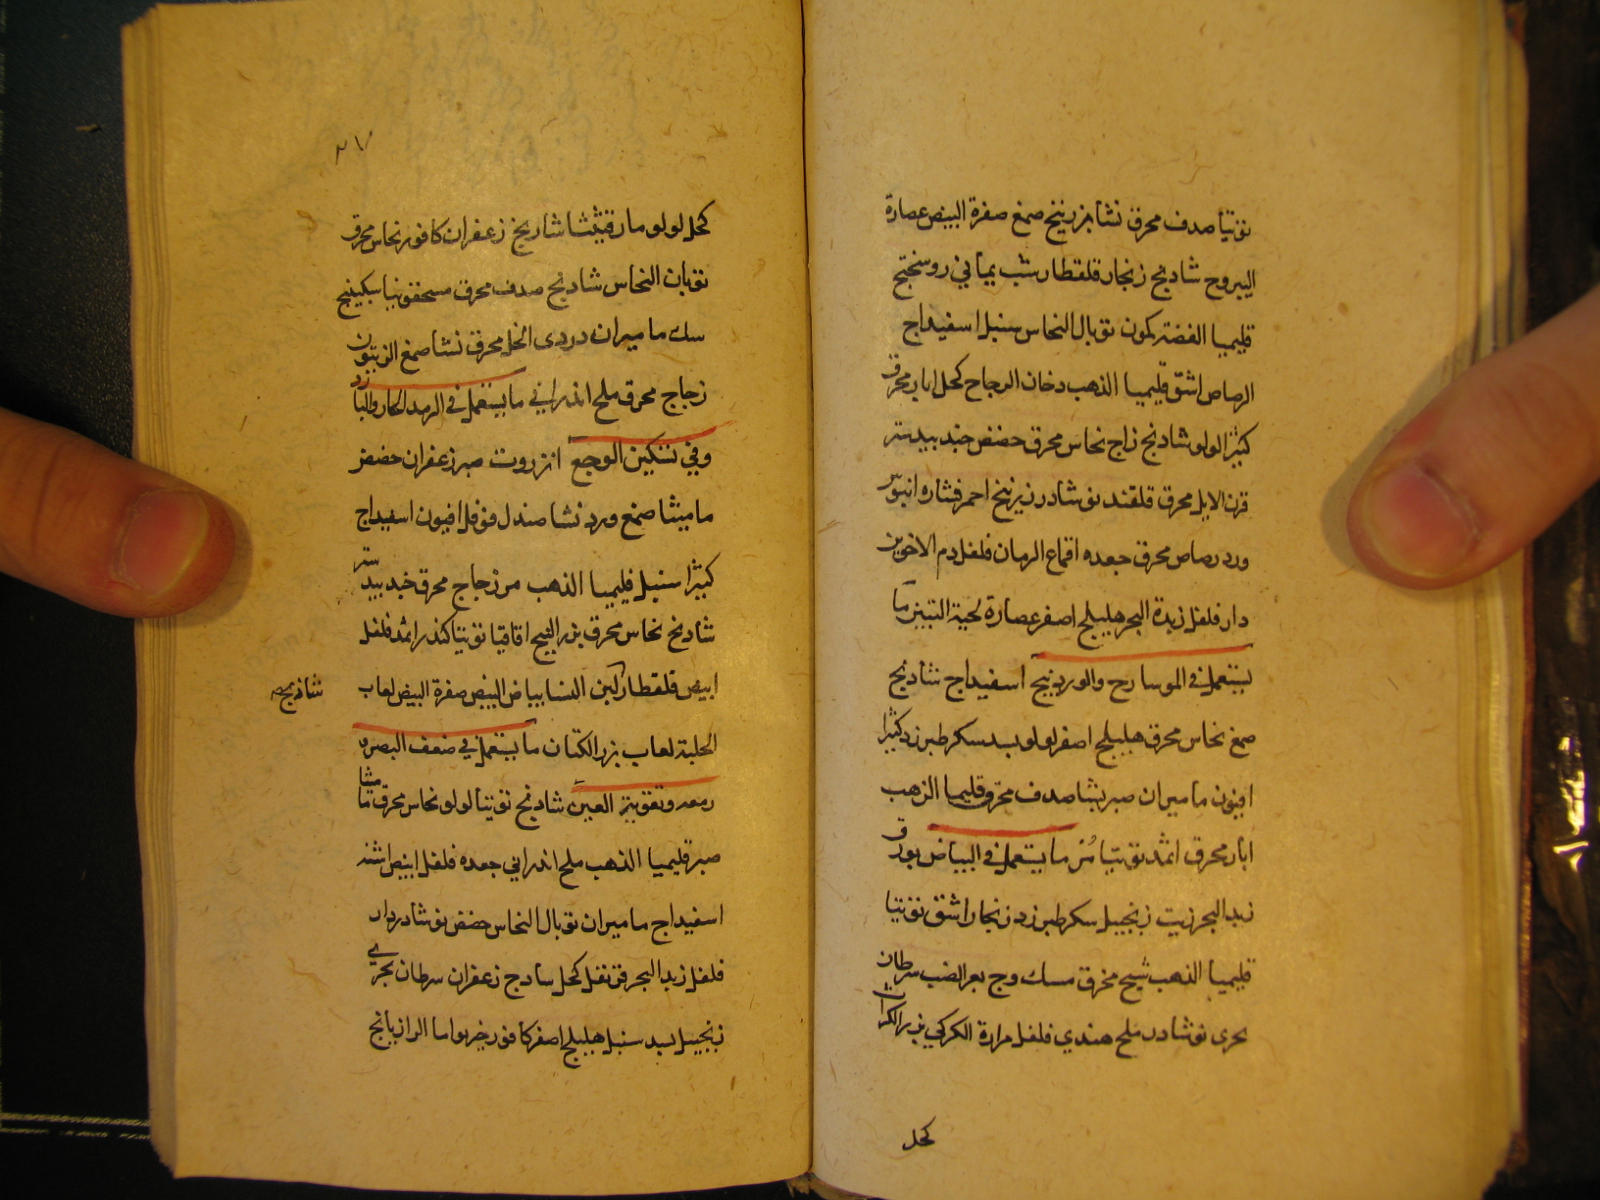 توتيا صدف محرق نشا زرنيخ صمغ صفرة البيض عصارة
اليبروح شادنج زنجار قلقطار شب يماني روسختج
قليميا الفضة كمون توبال النحاس سنبل اسفيداج
الرصاص اشق قليميا الذهب دخان الزجاج كحل ابار محرق
كثيرا لولو شادنج زاج نحاس محرق حضض جندبيدستر
قرن الايل محرق قلقند نوشادر زرنيخ احمر
ورد رصاص محرق جعده اقماع الرمان فلفل دم الاخوين
دار فلفل زبدة البحر هليلج اصفر عصارة لحية التيس ما
يستعمل في الموسارح والوردينج اسفيداج شادنج
صمغ نحاس محرق هليلج اصفر لولو بسد سكر طبرزد كثيرا
افيون ماميران صبر نشا صدف محرق قليميا الذهب
ابار محرق اثمد توتيا مر ما يستعمل في البياض بورق
زبد البحر زيت زنجبيل سكر طبرزد زنجار اشق توتيا
قليميا الذهب شيح محرق مسك وج بعر الضب سرطان
بحري نوشادر ملح هندي فلفل مرارة الكركي بزر الكراث
كحل
٢٧
كحل لولو مارقشيثا شادنج زعفران كافور نحاس محرق
توبان النحاس شادنج صدف محرق سكبينج
سك ماميران دردي الخل محرق نشا صمغ الزيتون
زجاج محرق ملح اندراني ما يستعمل في الرمد الحار والبارد
وفي تسكين الوجع انزروت صبر زعفران حضض
ماميثا صمغ ورد نشا صندل فوفل افيون اسفيداج
كثيرا سنبل قليميا الذهب مر زجاج محرق جندبيدستر
شادنج نحاس محرق بزر البنج اقاقيا توتيا كندر اثمد فلفل
ابيض قلقطار لبن النسا بياض البيض صفرة البيض لعاب
شادنج
الحلبة لعاب بزر الكتان ما يستعمل في ضعف البصر
ودمعه وتقوية العين شادنج توتيا لولو نحاس محرق ماميثا
صبر قليميا الذهب ملح اندراني جعده فلفل ابيض اثمد
اسفيداج ماميران توبال النحاس حضض نوشادر دار
فلفل زبد البحر قرنفل كحل سادج زعفران سرطان بحري
زنجبيل بسد سنبل هليلج اصفر كافور ما الرازيانج